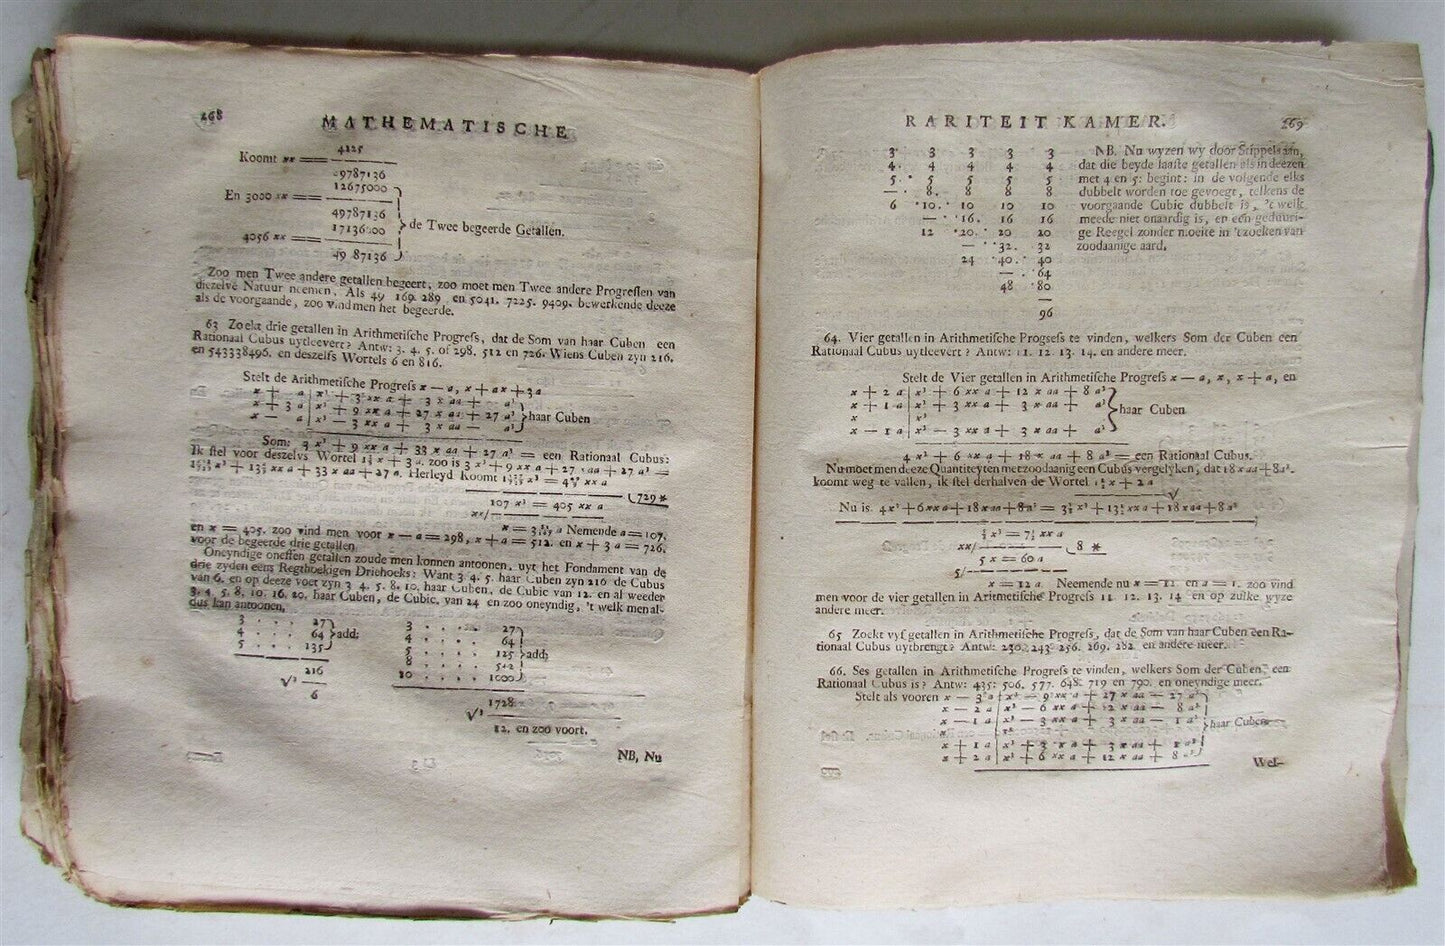 268
MATHEMATISCHE
4225
Koomt xx ══
49787136
12675000
En 3000 xx ══
49787136
17136000
de Twee begeerde Getallen.
4056 xx ══
49 87136
Zoo men Twee andere getallen begeert, zoo moet men Twee andere Progreſſen van
diezelve Natuur neemen, Als 49 169. 289 en 5041. 7225. 9409. bewerkende deeze
als de voorgaande, zoo vind men het begeerde.
63 Zoekt drie getallen in Arithmetiſche Progreſs, dat de Som van haar Cuben een
Rationaal Cubus uytleevert? Antw: 3. 4. 5. of 298. 512 en 726. Wiens Cuben zyn 216.
en 543338496. en deszelfs Wortels 6 en 816.
Stelt de Arithmetiſche Progreſs x — a, x + a x + 3 a
x + a | x³ + 3 xx a + 3 x aa + a³
x + 3 a | x³ + 9 xx a + 27 x aa + 27 a³ haar Cuben
x — a | x³ — 3 xx a + 3 x aa — a³
Som: 3 x³ + 9 xx a + 33 x aa + 27 a³ = een Rational Cubus:
Ik ſtel voor deszelvs Wortel
x + 3 a. zoo is 3 x³ + 9 xx a + 27 x aa + 27 a³ =
xx a + 33 x aa + 27 a. Herleyd Koomt
729 *
107 x³ = 405 xx a
xx/
a Nemende a = 107.
en x = 405. zoo vind men voor x — a = 298, x + a = 512. en x + 3 a = 726.
voor de begeerde drie getallen
Oneyndige oneffen getallen zoude men konnen antoonen, uyt het Fondament van de
drie zyden eens Regthoekigen Driehoeks: Want 3. 4. 5. haar Cuben zyn 216 de Cubus
van 6. en op deeze voet zyn 3 4. 5. 8. 10. haar Cuben, de Cubic van 12. en al weeder
3. 4. 5. 8. 10. 16. 20. haar Cuben, de Cubic. van 24 en zoo oneyndig, 't welk men al-
dus kan antoonen,
3 . . . 27
4 . . . 64 add:
5 . . . 135
216
√³
6
3 . . . . 27
4 . . . . 64
5 . . . . 125 add;
8 . . . . 512
10 . . . . 1000
1728
√³
12. en zoo voort.
NB, Nu
RARITEIT KAMER.
269
3 3 3 3 3
4 . 4 4 4 4
5 . 5 5 5 5
— . 8. 8 8 8
6 . 10. 10 10 10
— . 16. 16 16
12 . 20. 20 20
— . 32. 32
24 . 40. 40
— . 64
48 . 80
—
96
NB. Nu wyzen wy door Stippels aan,
dat die beyde laaſte getallen als in deezen
met 4 en 5: begint: in de volgende elks
dubbelt worden toe gevoegt, telkens de
voorgaande Cubic dubbelt is, 't welk
meede niet onaardig is, en een geduuri-
ge Reegel zonder moeite in 't zoeken van
zoodaanige aard.
64. Vier getallen in Arithmetiſche Progſeſs te vinden, welkers Som der Cuben een
Rationaal Cubus uytleevert? Antw: 11. 12. 13. 14. en andere meer.
Stelt de Vier getallen in Arithmetiſche Progreſs x — a, x, x + a, en
x + 2 a | x³ + 6 xx a + 12 x aa + 8 a³
x + 1 a | x³ + 3 xx a + 3 x aa + a³ haar Cuben
x | x³
x — 1 a | x³ — 3 xx a + 3 x aa + a³
4 x³ + 6 xx a + 18 x aa + 8 a³ = een Rational Cubus.
Nu moet men deeze Quantiteyten met zoodaanig een Cubus vergelyken, dat 18 x aa + 8 a³.
koomt weg te vallen, ik ſtel derhalven de Wortel 1½ x + 2 a
√
Nu is. 4 x³ + 6 xx a + 18 x aa + 8 a³ = 3⅜ x³ + 13½ xx a + 18 x aa + 8 a³
⅝ x³ = 7½ xx a
xx/ 8 *
5 x = 60 a
5/
x = 12 a. Neemende nu x = 12. en a = 1. zoo vind
men voor de vier getallen in Aritmetiſche Progreſs 11. 12. 13. 14 en op zulke wyze
andere meer.
65 Zoekt vyf getallen in Arithmetiſche Progreſs, dat de Som van haar Cuben een Ra-
tionaal Cubus uytbrengt? Antw: 230. 243. 256. 269. 282 en andere meer.
66. Ses getallen in Arithmetiſche Progreſs te vinden, welkers Som der Cuben, een
Rationaal Cubus is? Antw: 435: 506. 577. 648. 719 en 790. en oneyndige meer.
Stelt als vooren x — 3 a | x³ — 9 xx a + 27 x aa — 27 a³
x — 2 a | x³ — 6 xx a + 12 x aa — 8 a³
x — 1 a | x³ — 3 xx a + 3 x aa — 1 a³ haar Cuben
x | x³
x + 1 a | x³ + 3 x a + 3 x aa + 1 a³
x + 2 a | x³ + 6 xx a + 12 x aa + 8 a³
Wel-